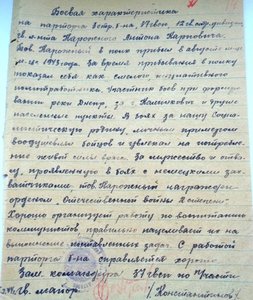 Боевая характеристика
на парторга 3 стр. б-на 37 гвсп 12 гв. стр. дивизии
гв. л-нта Нарожного Антона Карповича.
Тов. Нарожный в полк прибыл в августе
м-це 1943 года за время пребывания в полку
показал себя как смелого, инициативного
политработника. Участник боёв при форсиро-
вании реки Днепр, за г. Калинковичи и другие
населенные пункты. В боях за нашу Социа-
листическую родину, личным примером
воодушевлял бойцов и увлекал на истребле-
ние живой силы врага. За мужество и отва-
гу, проявленную в боях с немецкими зах-
ватчиками тов. Нарожный награжден
орденом „Отечественной войны 2 степени“.
Хорошо организует работу по воспитанию
коммунистов, правильно нацеливает их на
выполнение поставленных задач. С работой
парторга б-на справляется хорошо.
Зам. командира 37 гвсп по п/части
гв. майор /Константинов/